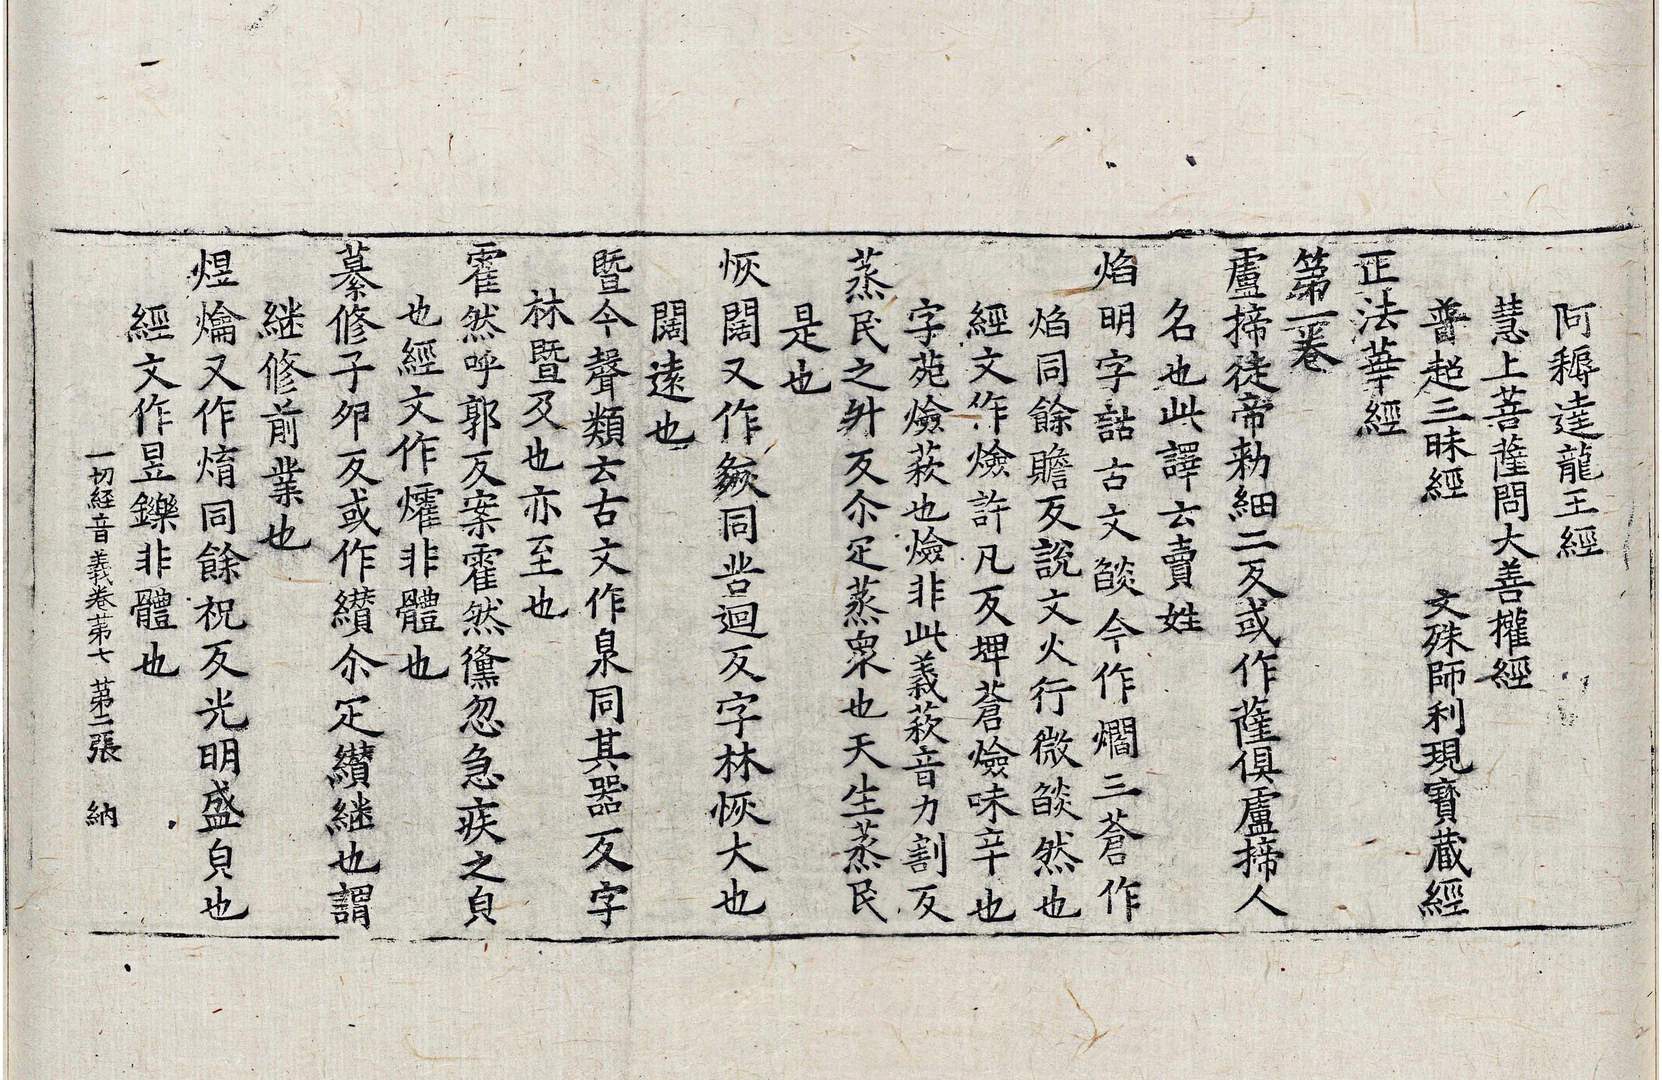 阿耨達龍王經
慧上菩薩問大善權經
普超三昧經　文殊師利現寶藏經
正法華經
第一卷
盧揥徒帝勑細二反或作薩俱盧揥人
名也此譯云賣姓
焰明字詁古文燄今作爓三蒼作
焰同餘贍反說文火行微燄然也
經文作燉許凡反埤蒼燉味辛也
字苑燉䓶也燉非此義䓶音力割反
蒸民之升反尒疋蒸衆也天生蒸民
是也
恢闊又作䚵同苦迴反字林恢大也
闊遠也
暨今聲類云古文作泉同其器反字
林暨及也亦至也
霍然呼郭反案霍然儻忽急疾之皃
也經文作㸌非體也
纂修子卵反或作纘尒疋纘継也謂
継修前業也
煜爚又作焴同餘祝反光明盛皃也
經文作昱鑠非體也
一切經音義卷第七　第二張　納